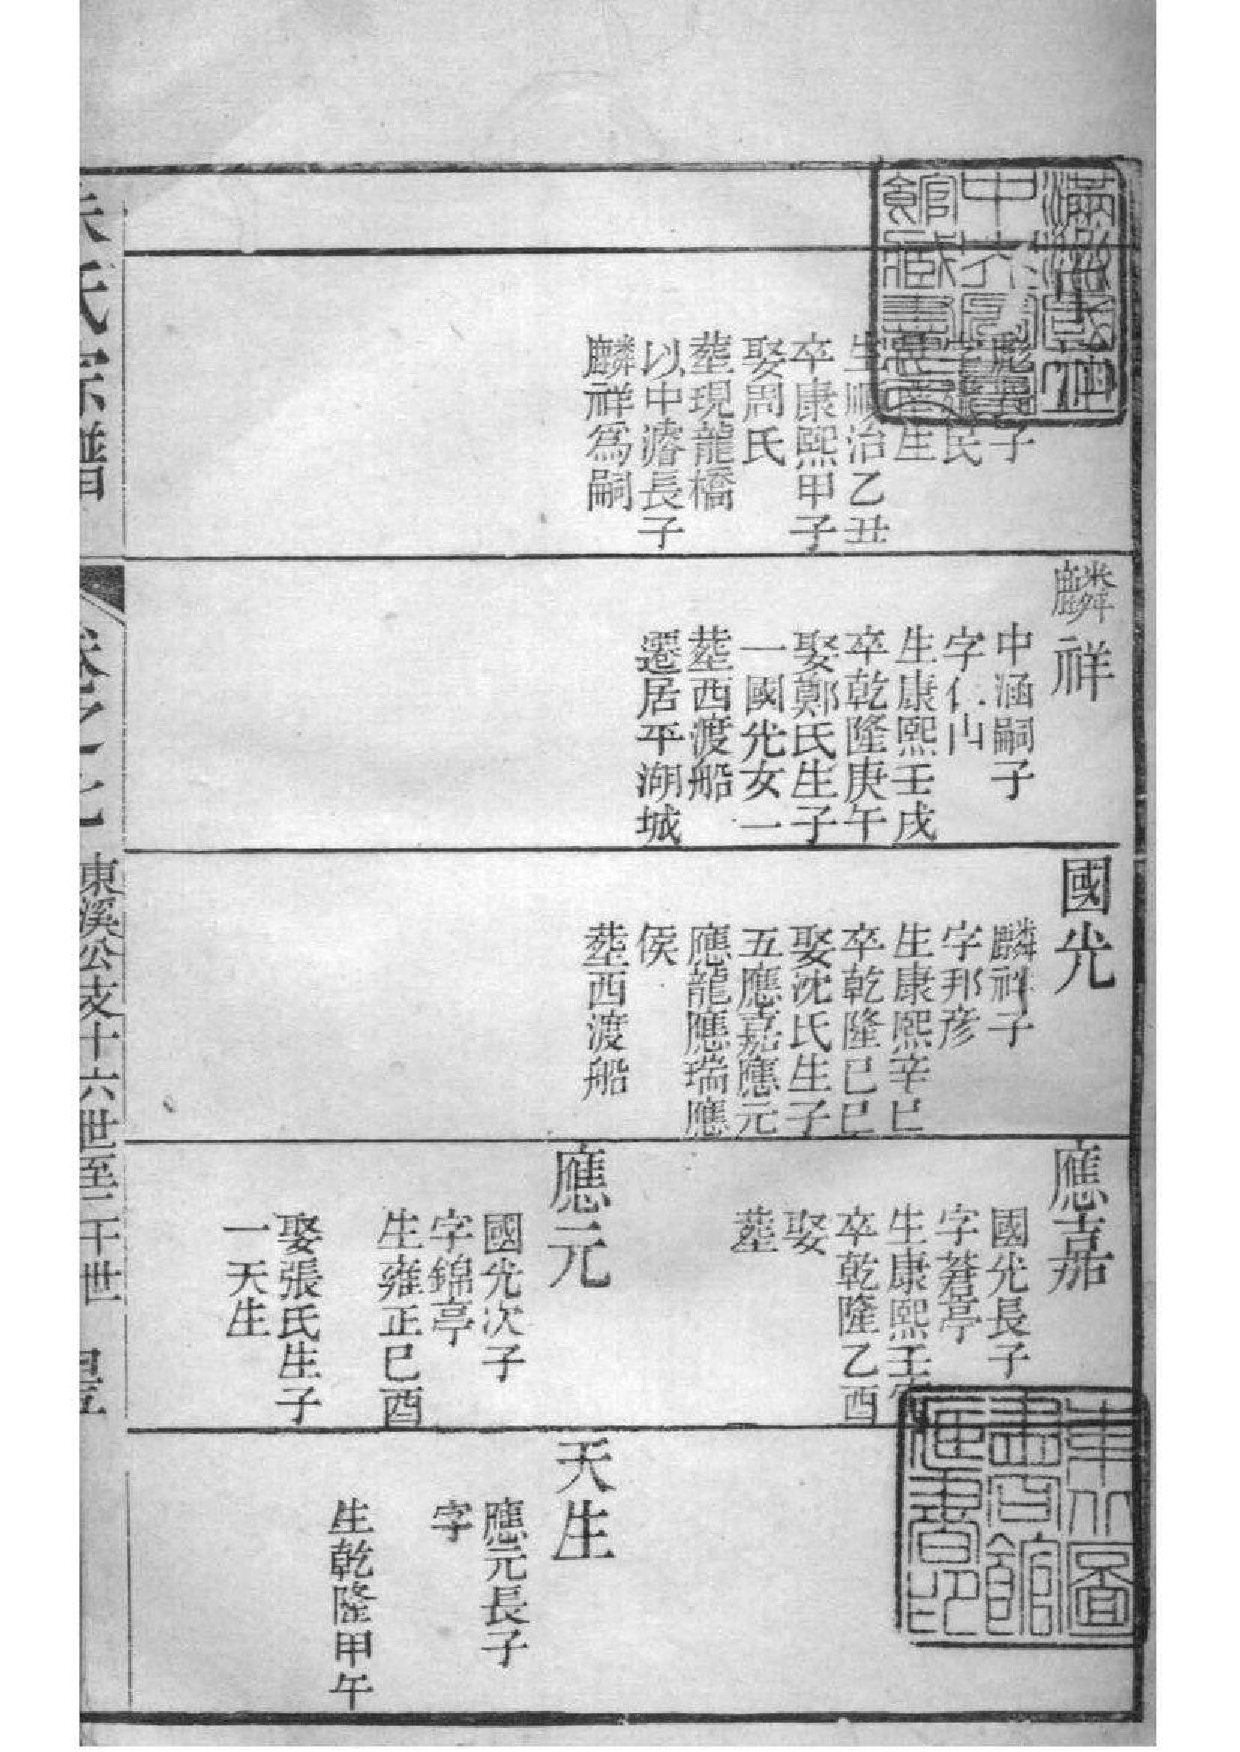 子
字 民
生
生順治乙丑
卒康熙甲子
娶周氏
塟現龍橋
以中濬長子
麟祥為嗣
麟祥
中涵嗣子
字仁山
生康熙壬戌
卒乾隆庚午
娶鄭氏生子
一國光女一
塟西渡船
遷居平湖城
國光
麟祥子
字邦彦
生康熙辛巳
卒乾隆己巳
娶沈氏生子
五應嘉應元
應龍應瑞應
侯
塟西渡船
應嘉
國光長子
字蒼亭
生康熙壬寅
卒乾隆乙酉
娶
塟
應元
國光次子
字錦亭
生雍正己酉
娶張氏生子
一天生
天生
應元長子
字
生乾隆甲午
朱氏宗譜
卷之七
東溪公支十六世至二十世
東北圖書館藏書印